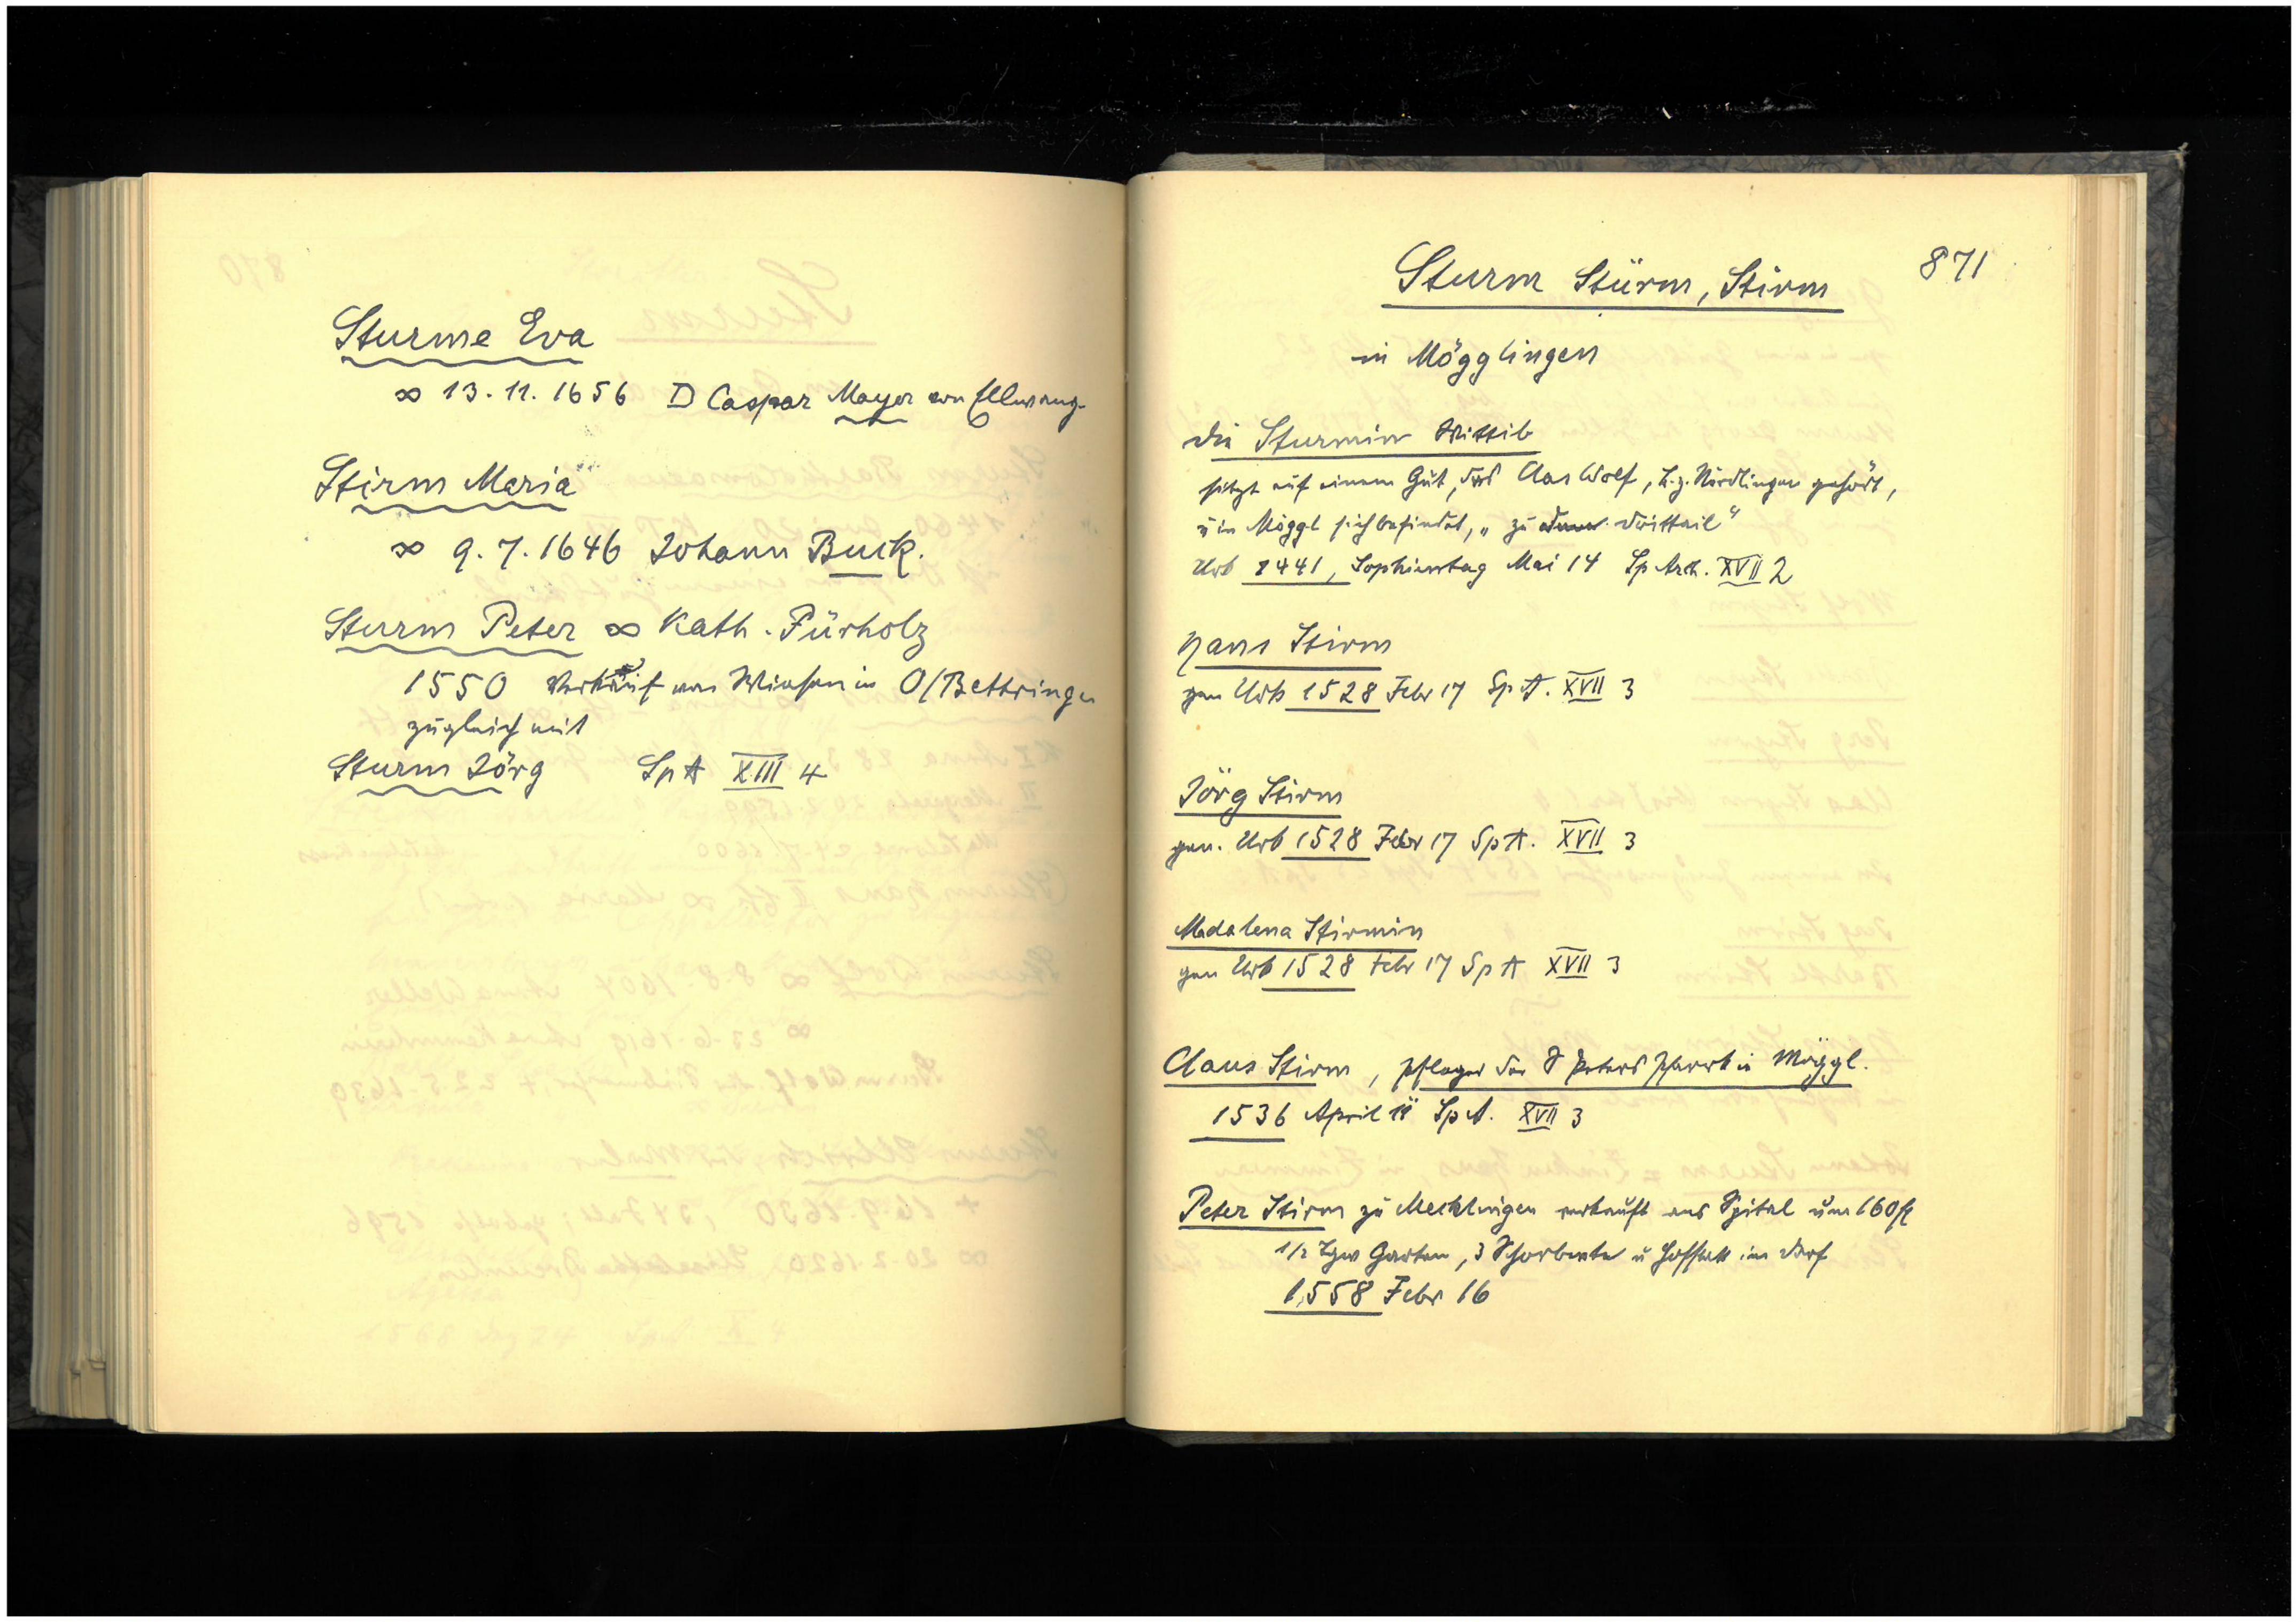 Sturme Eva
∞ 13. 11. 1656 D Caspar Mayer von Ellwang.
Stirm Maria
∞ 9. 7. 1646 Johann Buck.
Sturm Peter ∞ Kath. Pürholz
1550 Verkauf von Wiesen in O/Bettringen
zugleich mit
Sturm Jörg SpA XIII 4
871
Sturm Stürm, Stirm
in Mögglingen
die Sturmin Wittib
sitzt auf einem Gut, das Clas Wolf, B. z. Nördlingen gehört,
u in Möggl sich befindet, „zu drittail"
Urb 1441, Sophientag Mai 14 Sp Arch. XVII 2
Hans Stirm
gen Urb 1528 Febr 17 Sp A. XVII 3
Jörg Stirm
gen. Urb 1528 Febr 17 Sp A. XVII 3
Madalena Stirmin
gen Urb 1528 Febr 17 Sp A XVII 3
Claus Stirm, Pfleger der S Peters Pfarrk in Möggl.
1536 April Sp A. XVII 3
Peter Stirm zu Mecklingen verkauft ans Spital um 160 fl
1/2 Tgw Garten, 3 u Hofstatt im Dorf
1558 Febr 16